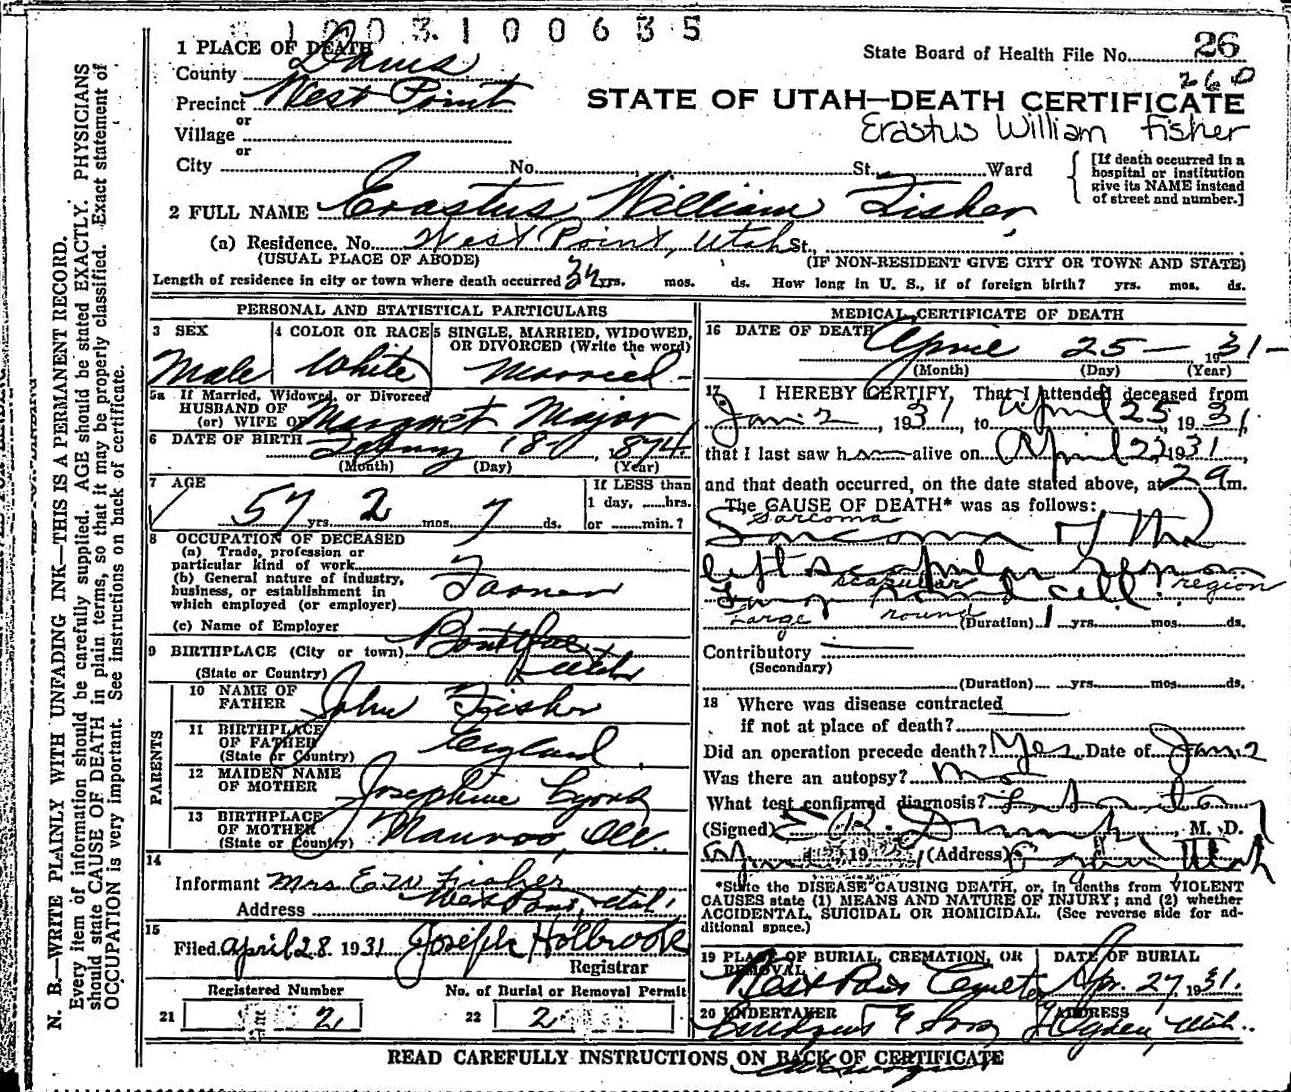 1003100635
1 PLACE OF DEATH
County Davis
State Board of Health File No. 26
260
Precinct West Point
or
STATE OF UTAH—DEATH CERTIFICATE
Erastus William Fisher
Village
or
City No. St. Ward
[If death occurred in a
hospital or institution
give its NAME instead
of street and number.]
2 FULL NAME Erastus William Fisher
(a) Residence, No. West Point, Utah St.,
(USUAL PLACE OF ABODE) (IF NON-RESIDENT GIVE CITY OR TOWN AND STATE)
Length of residence in city or town where death occurred yrs. mos. ds. How long in U. S., if of foreign birth? yrs. mos. ds.
PERSONAL AND STATISTICAL PARTICULARS
3 SEX
Male
4 COLOR OR RACE
White
5 SINGLE, MARRIED, WIDOWED,
OR DIVORCED (Write the word)
Married
5a If Married, Widowed, or Divorced
HUSBAND OF
(or) WIFE OF Margaret Major
6 DATE OF BIRTH 18 1874
(Month) (Day) (Year)
7 AGE
57 yrs. 2 mos. 7 ds.
If LESS than
1 day, ......hrs.
or ......min.?
8 OCCUPATION OF DECEASED
(a) Trade, profession or
particular kind of work
(b) General nature of industry,
business, or establishment in
which employed (or employer)
Farmer
(c) Name of Employer
9 BIRTHPLACE (City or town) Bountiful
(State or Country) Utah
PARENTS
10 NAME OF
FATHER John Fisher
11 BIRTHPLACE
OF FATHER
(State or Country) England
12 MAIDEN NAME
OF MOTHER Josephine Lyons
13 BIRTHPLACE
OF MOTHER
(State or Country) Nauvoo, Ill.
14
Informant Mrs E W Fisher
Address West Point, Utah
15
Filed April 28 1931 Joseph Holbrook
Registrar
Registered Number No. of Burial or Removal Permit
21 2 22 2
MEDICAL CERTIFICATE OF DEATH
16 DATE OF DEATH April 25 — 1931 -
(Month) (Day) (Year)
17 I HEREBY CERTIFY, That I attended deceased from
Jan 2, 1931, to April 25, 1931,
that I last saw h alive on April 22 1931,
and that death occurred, on the date stated above, at 2 a m.
The CAUSE OF DEATH* was as follows:
sarcoma
Sarcoma of the
left scapular region
scapular region
Large round cell
Large round
(Duration) 1 yrs. mos. ds.
Contributory
(Secondary)
(Duration) yrs. mos. ds.
18 Where was disease contracted
if not at place of death?
Did an operation precede death? Yes Date of Jan 2
Was there an autopsy? no
What test confirmed diagnosis? Laboratory
(Signed) E. R. , M. D.
19 (Address) Ogden Utah
*State the DISEASE CAUSING DEATH, or, in deaths from VIOLENT
CAUSES state (1) MEANS AND NATURE OF INJURY; and (2) whether
ACCIDENTAL, SUICIDAL OR HOMICIDAL. (See reverse side for ad-
ditional space.)
19 PLACE OF BURIAL, CREMATION, OR
REMOVAL
West Point Cemetery
DATE OF BURIAL
Apr. 27 1931.
20 UNDERTAKER
& Sons
ADDRESS
Ogden, Utah.
READ CAREFULLY INSTRUCTIONS ON BACK OF CERTIFICATE
N. B.—WRITE PLAINLY WITH UNFADING INK—THIS IS A PERMANENT RECORD.
Every item of information should be carefully supplied. AGE should be stated EXACTLY. PHYSICIANS
should state CAUSE OF DEATH in plain terms, so that it may be properly classified. Exact statement of
OCCUPATION is very important. See instructions on back of certificate.